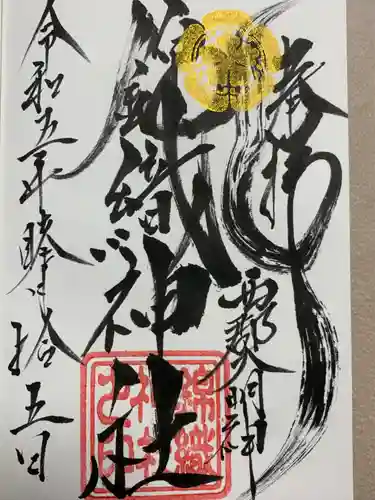 奉拝
錦織神社
令和五年睦月拾五日
錦織
神社
之印